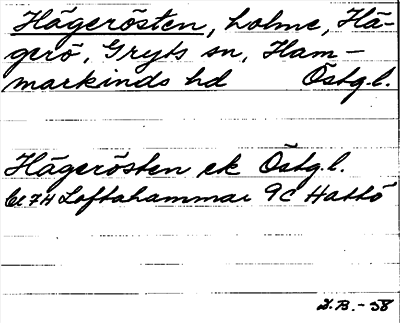 Hägerösten, holme, Hä-
gerö, Gryts sn, Ham-
markinds hd Östg.l.
Hägerösten ek Östg.l.
7H Loftahammar 9C Hattö
I.B.-58